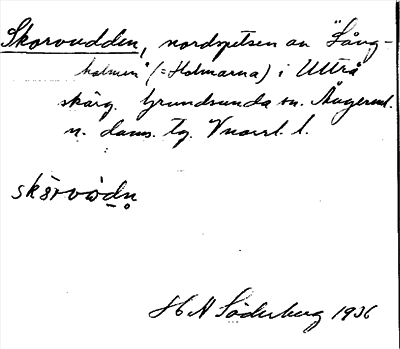 Skorvudden, nordspetsen av "Lång-
holmen" (= Holmarna) i Ulvö
skärg. Grundsunda sn. Ångerml.
n. doms. tg. Vnorrl. l.
H N Söderberg 1936